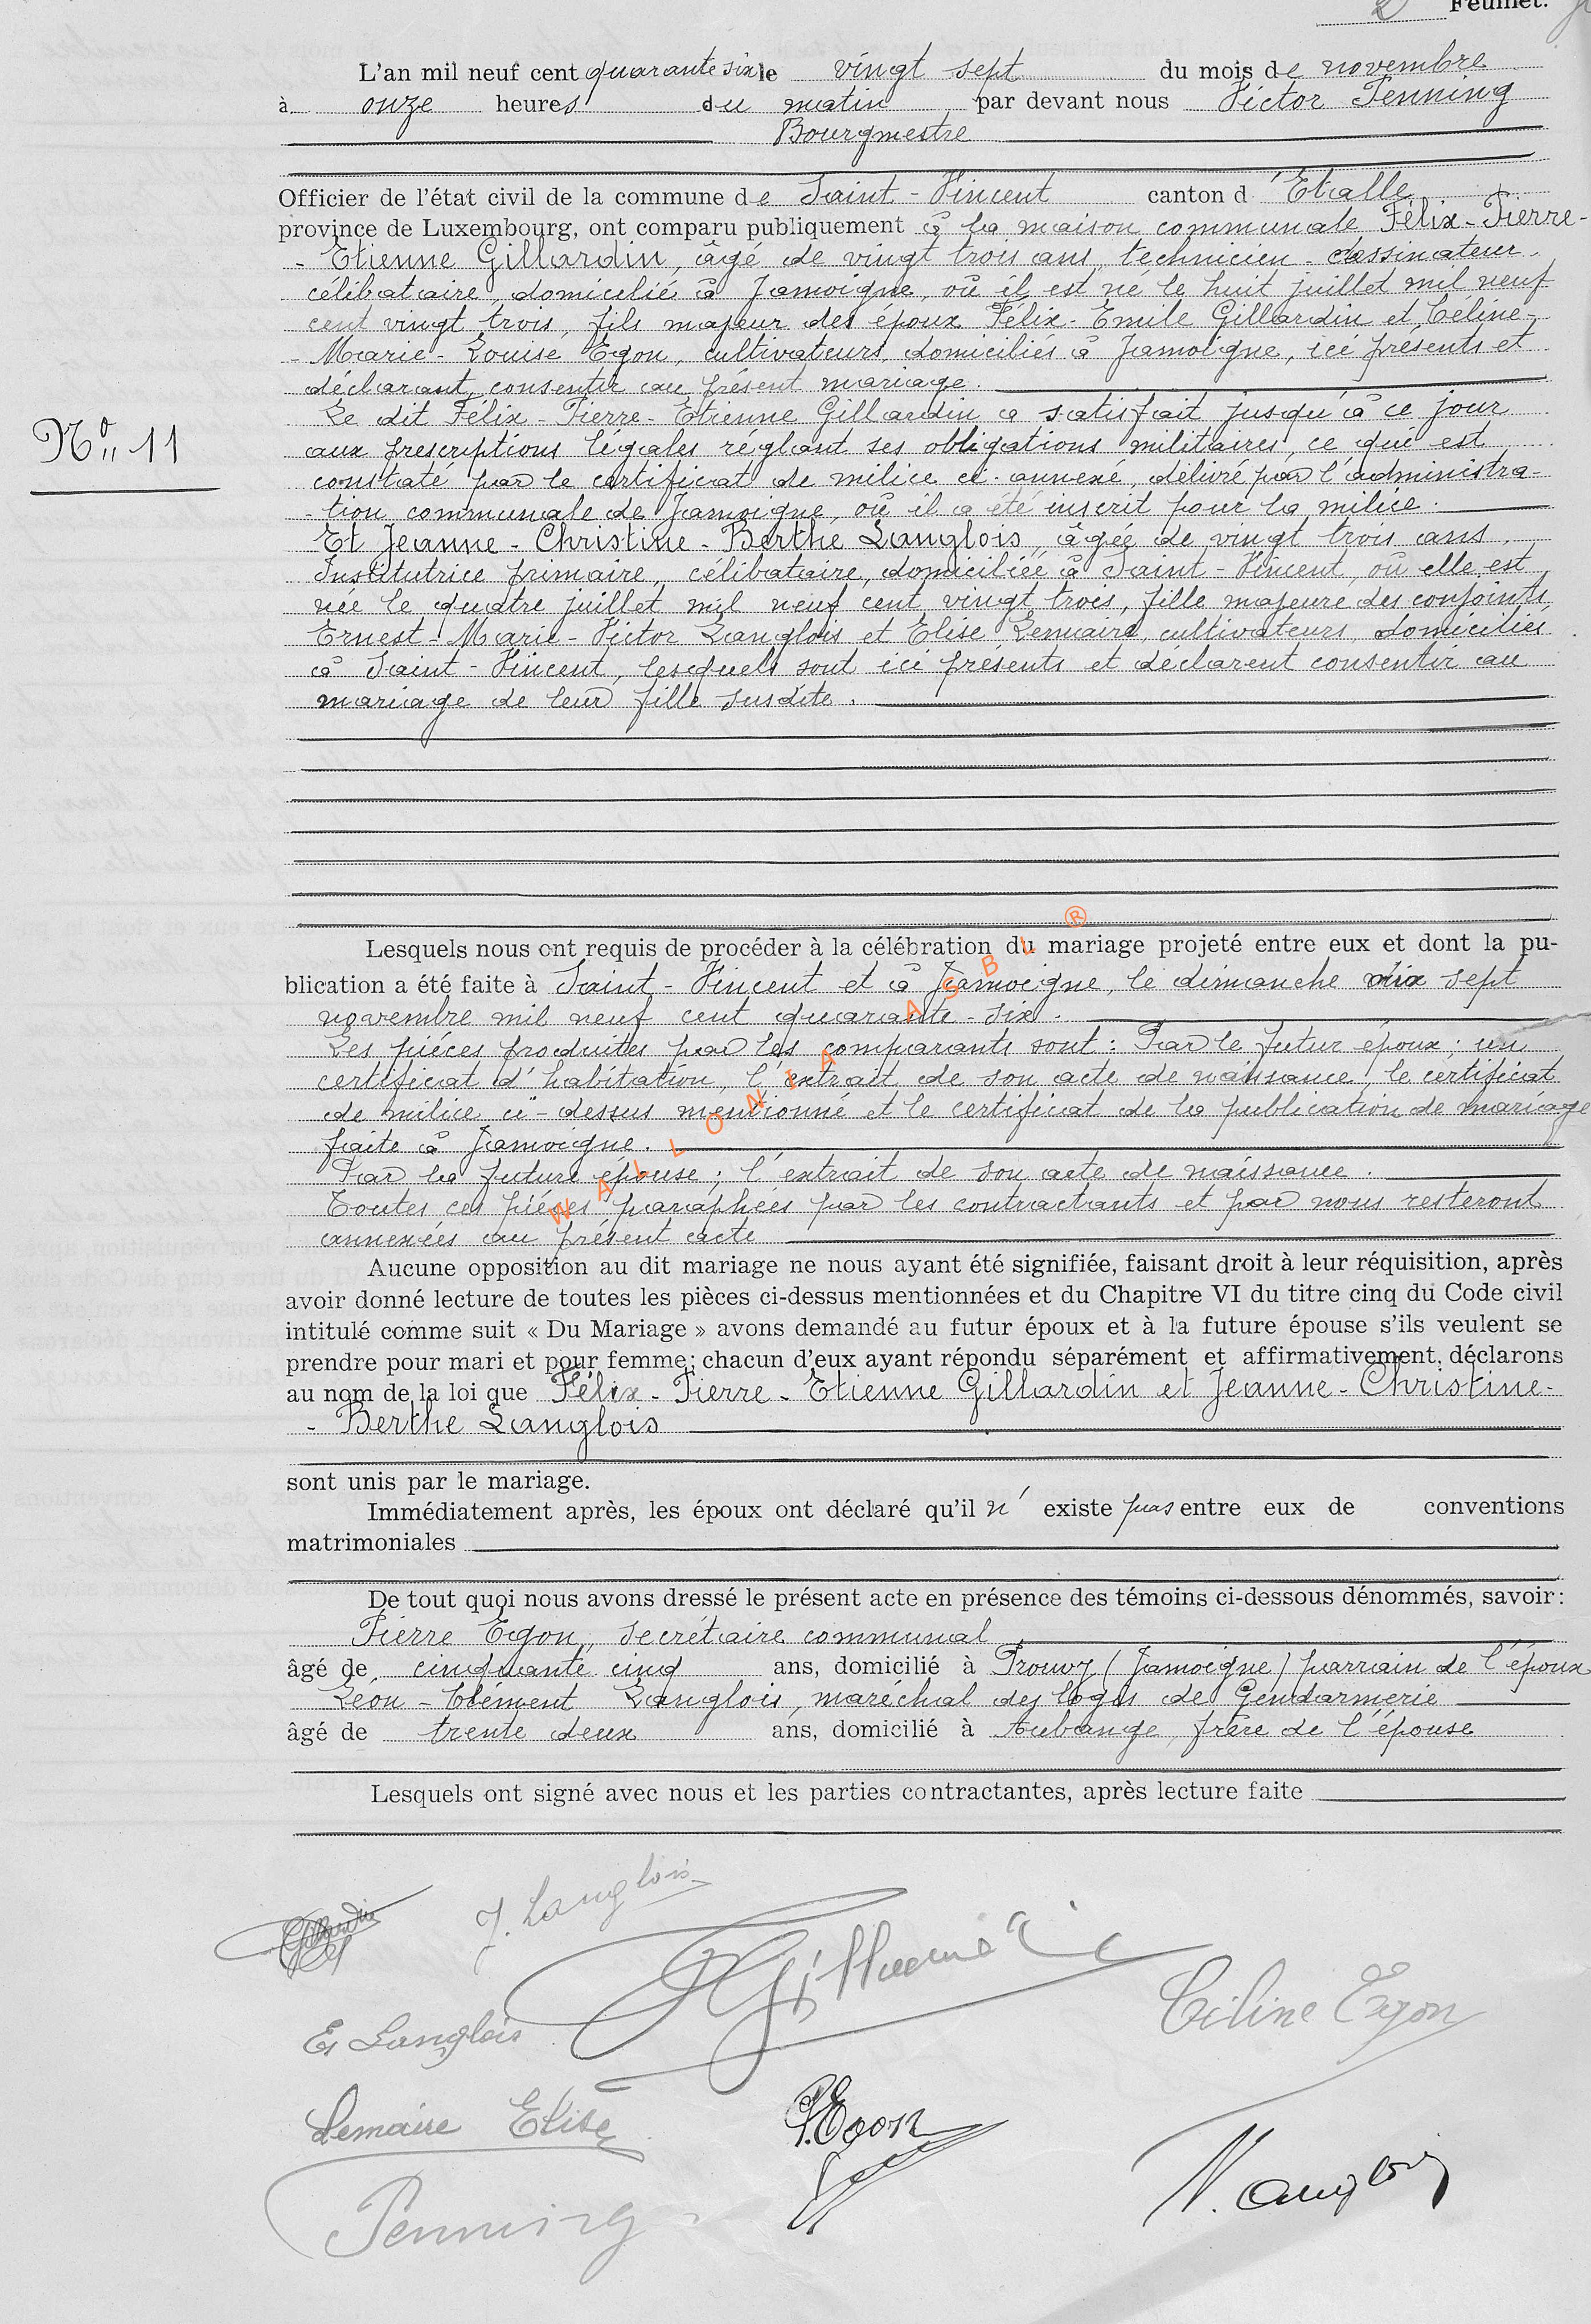 2 Feuillet.
L'an mil neuf cent quarante six le vingt sept du mois de novembre
à onze heures du matin par devant nous Victor Penning
Bourgmestre
Officier de l'état civil de la commune de Saint-Vincent canton d'Etalle
province de Luxembourg, ont comparu publiquement à la maison communale Félix-Pierre-
-Etienne Gillardin, âgé de vingt trois ans, technicien-dessinateur,
célibataire, domicilié à Jamoigne, où il est né le huit juillet mil neuf
cent vingt trois, fils majeur des époux Félix-Emile Gillardin et Céline-
-Marie-Louise Egon, cultivateurs, domiciliés à Jamoigne, ici présents et
déclarant consentir au présent mariage.
Le dit Félix-Pierre-Etienne Gillardin a satisfait jusqu'à ce jour
Nº 11
aux prescriptions légales réglant ses obligations militaires, ce qui est
constaté par le certificat de milice ci-annexé, délivré par l'administra-
-tion communale de Jamoigne, où il a été inscrit pour la milice.
Et Jeanne-Christine-Berthe Langlois, âgée de vingt trois ans,
Institutrice primaire, célibataire, domiciliée à Saint-Vincent, où elle est
née le quatre juillet mil neuf cent vingt trois, fille majeure des conjoints
Ernest-Marie-Victor Langlois et Elise Lemaire, cultivateurs, domiciliés
à Saint-Vincent, lesquels sont ici présents et déclarent consentir au
mariage de leur fille susdite.
Lesquels nous ont requis de procéder à la célébration du mariage projeté entre eux et dont la pu-
blication a été faite à Saint-Vincent et à Jamoigne, le dimanche dix sept
novembre mil neuf cent quarante-six.
Les pièces produites par les comparants sont: Par le futur époux; un
certificat d'habitation, l'extrait de son acte de naissance, le certificat
de milice ci-dessus mentionné et le certificat de la publication de mariage
faite à Jamoigne.
Par la future épouse; l'extrait de son acte de naissance.
Toutes ces pièces paraphées par les contractants et par nous resteront
annexées au présent acte
WALLONIA ASBL ®
Aucune opposition au dit mariage ne nous ayant été signifiée, faisant droit à leur réquisition, après
avoir donné lecture de toutes les pièces ci-dessus mentionnées et du Chapitre VI du titre cinq du Code civil
intitulé comme suit « Du Mariage » avons demandé au futur époux et à la future épouse s'ils veulent se
prendre pour mari et pour femme; chacun d'eux ayant répondu séparément et affirmativement, déclarons
au nom de la loi que Félix-Pierre-Etienne Gillardin et Jeanne-Christine-
-Berthe Langlois
sont unis par le mariage.
Immédiatement après, les époux ont déclaré qu'il n'existe pas entre eux de conventions
matrimoniales
De tout quoi nous avons dressé le présent acte en présence des témoins ci-dessous dénommés, savoir:
Pierre Egon, secrétaire communal
âgé de cinquante cinq ans, domicilié à Prouvy (Jamoigne) parrain de l'époux
Léon-Clément Langlois, maréchal des logis de Gendarmerie
âgé de trente deux ans, domicilié à Aubange, frère de l'épouse
Lesquels ont signé avec nous et les parties contractantes, après lecture faite
J. Langlois
E. Langlois
Céline Egon
Lemaire Elise
P. Egon
Penning